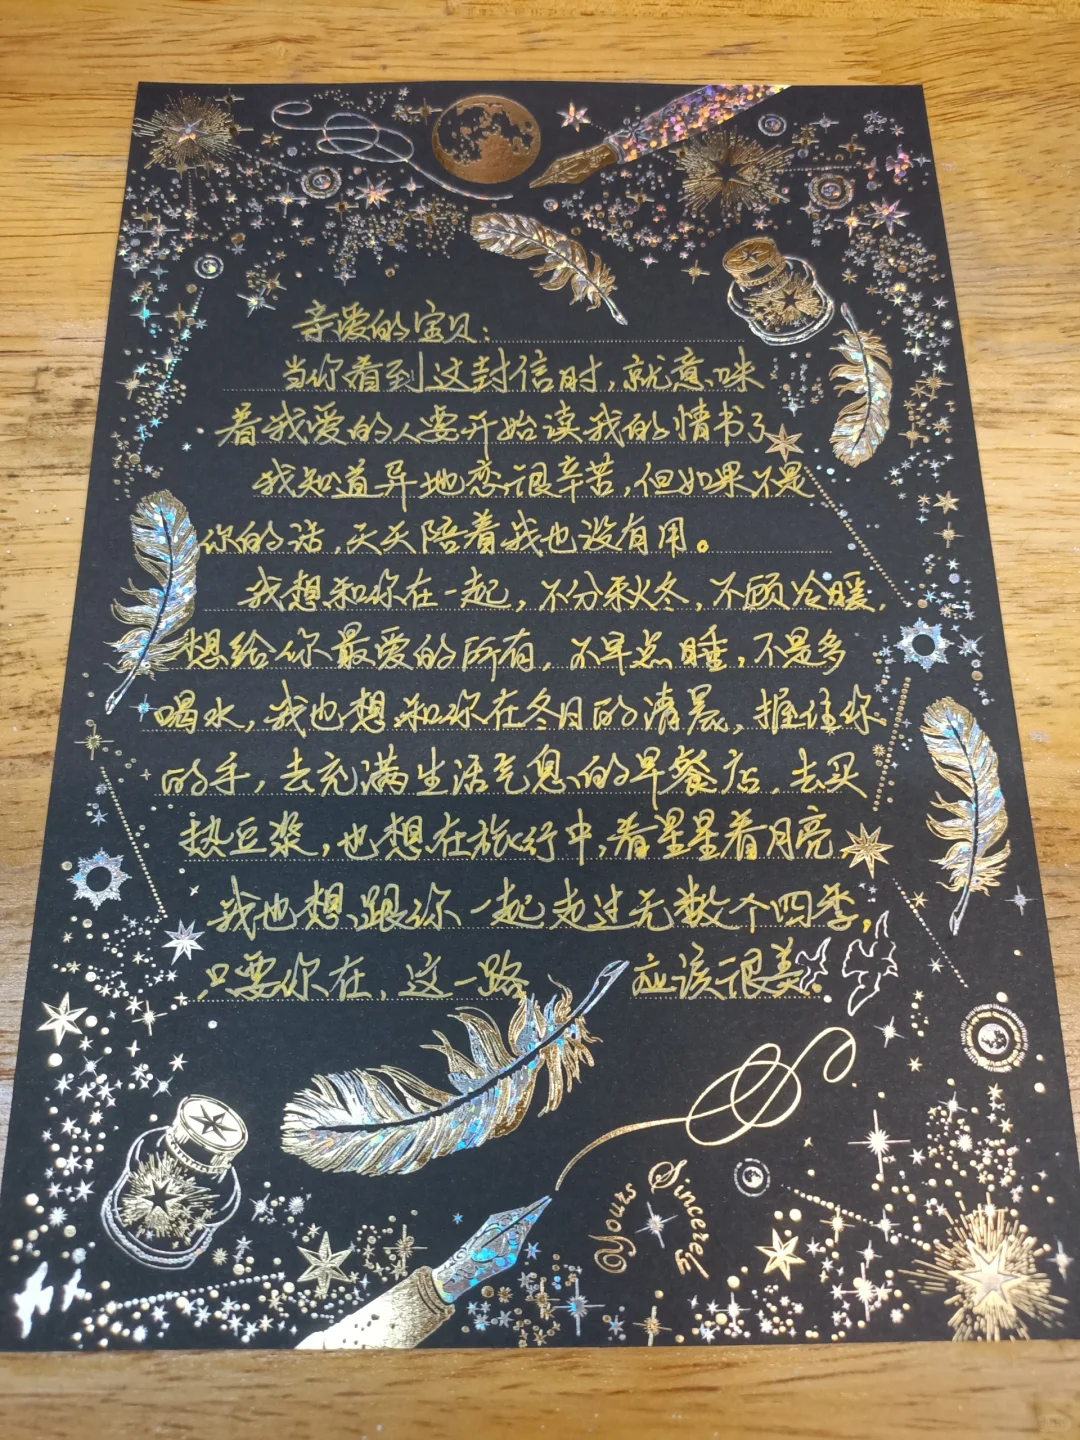 亲爱的宝贝：
当你看到这封信时，就意味
着我爱的人要开始读我的情书了
我知道异地恋很辛苦，但如果不是
你的话，天天陪着我也没有用。
我想和你在一起，不分秋冬，不顾冷暖，
想给你最爱的所有，不早点睡，不是多
喝水，我也想和你在冬日的清晨，握住你
的手，去充满生活气息的早餐店，去买
热豆浆，也想在旅行中，看星星看月亮，
我也想跟你一起走过无数个四季，
只要你在，这一路 应该很美。
Yours Sincerely